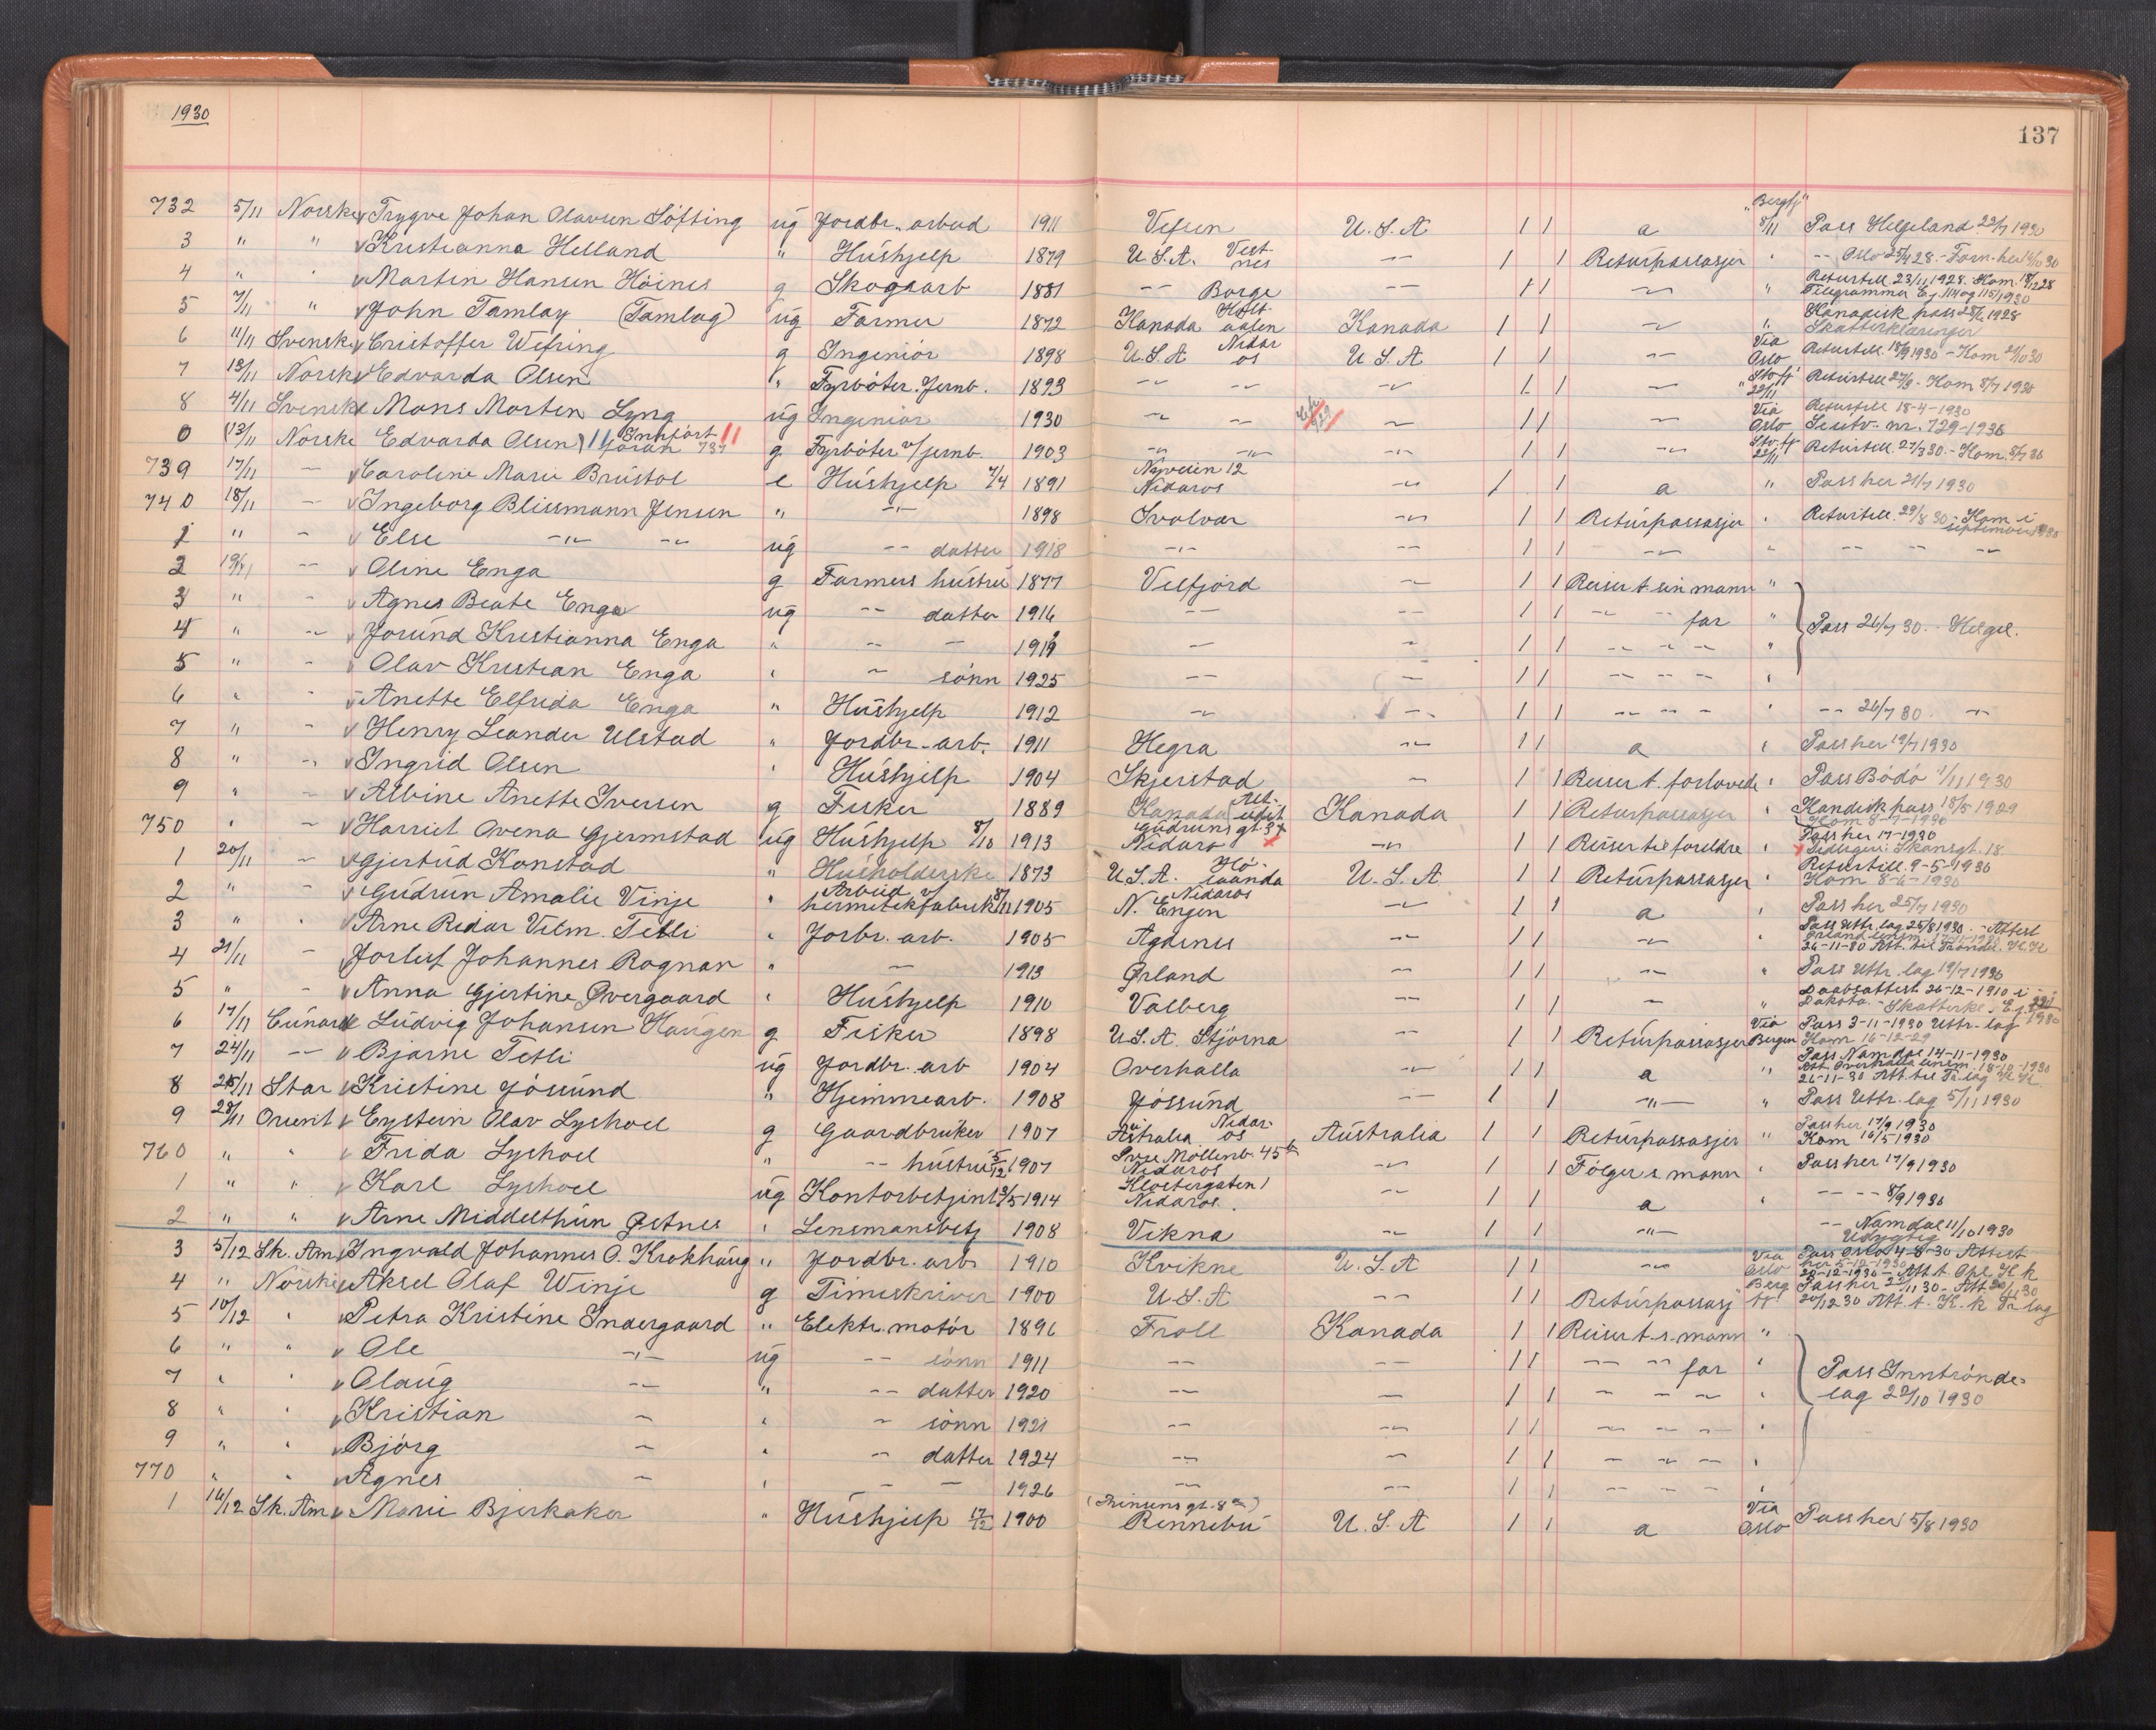 1930
137
732 5/11 Norske Trygve Johan Olavsen Söfting ug Jordbr. arbeid 1911 Vefsen U.S.A 1 1 a "Bergfj" 8/11 Pass Helgeland 1930
3 " " Kristianna Helland " Húshjelp 1879 U.S.A. Vest-nes -"- 1 1 Retúrpassasjer " -"- Oslo 28
4 " " Martin Hansen Höines g Skogsarb 1881 -"- Borge -"- 1 1 -"- " Returtill. 23/11 1928. Kom 18/12 28 Telegramma Ej. 114 og 115/1930
5 7/11 " John Tamlay (Tamlag) ug Farmer 1872 Kanada Holt-aalen Kanada 1 1 -"- " Kanadisk pass 1928 Skatterklæringer
6 11/11 Svenske Cristoffer Wefring g Ingeniör 1898 U.S.A Nidar os U.S.A 1 1 -"- Via Oslo Returtill. 18/9 1930 - Kom 30
7 13/11 Norske Edvarda Olsen " Fyrböter. Jernb. 1893 -"- -"- -"- 1 1 -"- 22/11 Returtill 27/3 - Kom 8/7 1930
8 4/11 Svenske Mons Morten Lyng ug Ingeniör 1930 -"- -"- -"- 1 1 -"- Via Oslo Returtill 18-4-1930 nr. 729-1930
0 (13/11 Norske Edvarda Olsen) || Innfört foran 737 || g Fyrböter v/ jernb. 1903 -"- -"- -"- 1 1 -"- 22/11 Returtill. 27/3 30. - Kom. 8/7 30
739 17/11 -"- Caroline Marie Brústol e Húshjelp 7/4 1891 Nyveien 12 Nidaros -"- 1 1 a " Pass her 21/7 1930
740 18/11 -"- Ingeborg Blissmann Jensen " -"- 1898 Svolvær -"- 1 1 Retúrpassasjer " Returtill. 29/8 30 - Kom i september 1930
1 " -"- Else -"- -"- ug -"- datter 1918 -"- -"- 1 1 -"- " -"- -"- -"-
2 19/11 -"- Oline Enga g Farmers hústrú 1877 Velfjord -"- 1 1 Reiser t. sin mann "
3 " -"- Agnes Beate Enga ug -"- datter 1916 -"- -"- 1 1 -"- -"- far " Pass 26/7 30. - Helgel.
4 " -"- Jorúnd Kristianna Enga " -"- -"- 1919 -"- -"- 1 1 -"- -"- -"- "
5 " -"- Olav Kristian Enga " -"- sönn 1925 -"- -"- 1 1 -"- -"- -"- "
6 " -"- Anette Elfrida Enga " Húshjelp 1912 -"- -"- 1 1 -"- -"- -"- " -"- 26/7 30. -"-
7 " -"- Henry Leander Ulstad " Jordbr.-arb. 1911 Hegra -"- 1 1 a " Pass her 19/7 1930
8 " -"- Ingrid Olsen " Húshjelp 1904 Skjerstad -"- 1 1 Reiser t. forlovede " Pass Bodö 1/11 1930
9 " -"- Albine Anette Iversen g Fisker 1889 Kanada Kanada 1 1 Retúrpassasjer " Kandisk pass 18/5 1929 Kom 8-7-1930
750 " -"- Harriet Ovena Gjermstad ug Húshjelp 8/10 1913 Gúdruns gt. Nidaro -"- 1 1 Reiser til foreldre " Pass her 17-1930 Tidligere: Skansgt. 18
1 20/11 -"- Gjertrud Konstad " Húsholderske 1873 U.S.A. Hö-landa U.S.A 1 1 Retúrpassasjer " Returtill. 9-5-1930 Kom 8-6-1930
2 " -"- Gúdrún Amalie Vinje " Arbeid v/ hermetikfabrik 8/11 1905 N. Engen Nidaros -"- 1 1 a " Pass her 25/7 1930
3 " " Arne Reidar Vilm. Tetli " Jorbr. arb. 1905 Agdenes -"- 1 1 -"- " Pass Uttr. lag 25/8 1930. - Attest 26-11-30 Att. til
4 21/11 -"- Jorleif Johannes Rognan " -"- 1913 Ørland -"- 1 1 -"- " Pass Uttr. lag 19/7 1930
5 " -"- Anna Gjertine Øvergaard " Húshjelp 1910 Valberg -"- 1 1 -"- " Daabsattest. 26-12-1910 i Dakota. - Skatterkl. Ej. 1930
6 17/11 Cunard Lúdvig Johansen Haúgen g Fisker 1898 U.S.A. Stjörna -"- 1 1 Retúrpassasjer Via Bergen Pass 3-11-1930 Uttr. lag Kom 16-12-29
7 24/11 -"- Bjarne Tetli ug Jordbr. arb 1904 Overhalla -"- 1 1 a " Pass Namdal 14-11-1930 Att. Overhalla lensm. 18-10-1930 26-11-30 Att. til Tr. lag
8 25/11 Star Kristine Jössúnd " Hjemmearb. 1908 Jössúnd -"- 1 1 -"- " Pass Uttr. lag 5/11 1930
9 28/11 Orient Eystein Olav Lyshoel g Gaardbrúker 1907 Aústralia Nidar-os Aústralia 1 1 Retúrpassasjer " Pass her 17/9 1930 Kom 16/5 1930
760 " " Frida Lyshoel " -"- hústrú 5/12 1907 Möllenb. 45 Nidaros -"- 1 1 Fölger s. mann " Pass her 17/9 1930
1 " " Karl Lyshoel ug Kontorbetjent 3/5 1914 Klostergaten 1 Nidaros. -"- 1 1 a " -"- -"- 8/9 1930
2 " " Arne Middelthún Østnes " Lensmansbetj 1908 Vikna -"- 1 1 -"- -"- Namdal 11/10 1930 Ugyldig
3 5/12 Sk. Am. Ingvald Johannes O. Krokhaúg " Jordbr. arb. 1910 Kvikne U.S.A 1 1 -"- Via Oslo Pass Oslo 4-8-30 Attest her 5-12-1930 20-12-1930 - Att. t. Opl. K. k
4 " Norske Aksel Olaf Winje g Timeskriver 1900 U.S.A -"- 1 1 Retúrpassasj Berg Pass her 11 30 - Att. 20/12 30 Att. t. K. k Tr lag
5 10/12 " Petra Kristine Indergaard " Elektr. motör 1896 Troll Kanada 1 1 Reiser t. s. mann "
6 " " Ole -"- ug -"- sönn 1911 -"- -"- 1 1 -"- -"- far " Pass Inntrönde-
7 " " Olaúg -"- " -"- datter 1920 -"- -"- 1 1 -"- -"- -"- " lag 29/10 1930
8 " " Kristian -"- " -"- sönn 1921 -"- -"- 1 1 -"- -"- -"- "
9 " " Björg -"- " -"- datter 1924 -"- -"- 1 1 -"- -"- -"- "
770 " " Agnes -"- " -"- -"- 1926 -"- -"- 1 1 -"- -"- -"- "
1 16/12 Sk. Am Marie Bjerkaker " Húshjelp 17/12 1900 (Prinsens gt. 8) Rennebú U.S.A 1 1 a Via Oslo Pass her 5/8 1930